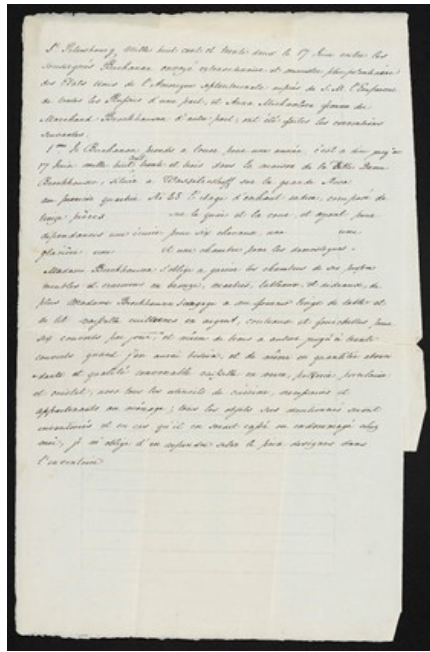 St Petersbourg, mille huit cent et trente deux le 17 Juin entre les
Soussignés Buchanan envoyé extraordinaire et ministre plenipotentiaire
des Etats Unis de l'Amerique septentrionale auprès de S. M. l'Empereur
de toutes les Russies d'une part, et Anna Michaelovna femme du
Marchand Brockhausen d'autre part, ont été faites les conventions
suivantes.
1mo Mr Buchanan prends a louer pour une année, c'est a dire jusqu'au
17 Juin mille huit cent trente et trois dans la maison de la dite Dame
Brockhausen, située a Wassilenskoff sur la grande Neva
au premier quartier No 65 l'étage d'enhaut entier, composé de
treize pièces sur le quai et la cour, et ayant pour
dépendances une écurie pour six chevaux, une une
glacière une et une chambre pour les domestiques.
Madame Brockhausen s'oblige a garnir les chambres de ses propres
meubles et ornemens en bronze, marbre, tableaux, et rideaux, de
plus Madame Brockhausen s'engage a me fournir linge de table et
de lit, vaisselle cuillieres en argent, couteaux et fourchettes, pour
six couverts par jour, et même de tems a autre jusqu'à trente
couverts quand j'en aurai besoin, et de même en quantité abon-
-dante et qualité convenable vaisselle en verre, potterie, porcelaine
et cristal, avec tous les utensils de cuisine, et
appartenants au ménage; tous les objets sus mentionnés seront
inventoriés et en cas qu'il en serait cassé ou endommagé chez
moi, je m'oblige d'en repondre selon le prix designés dans
l'inventaire